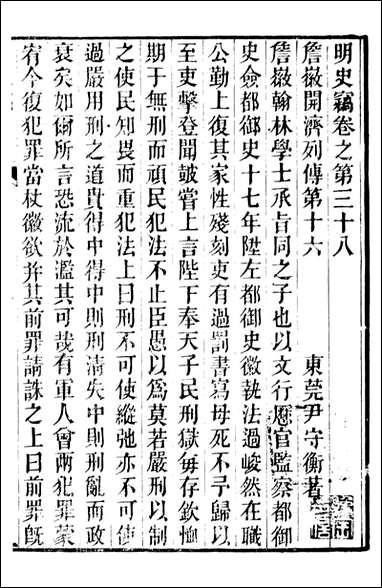 明史竊卷之第三十八
東莞尹守衡著
詹徽開濟列傳第十六
詹徽翰林學士承旨同之子也以文行歷官監察都御
史僉都御史十七年陞左都御史徽執法過峻然在職
公勤上復其家性殘刻吏有過罰書寫母死不予歸以
至吏擊登聞皷嘗上言陛下奉天子民刑獄每存欽恤
期于無刑而頑民犯法不止臣愚以爲莫若嚴刑以制
之使民知畏而重犯法上曰刑不可使縱弛亦不可使
過嚴用刑之道貴得中得中則刑清失中則刑亂而政
衰矣如爾所言恐流於濫其可哉有軍人曾兩犯罪蒙
宥今復犯罪當杖徽欲并其前罪請誅之上曰前罪旣